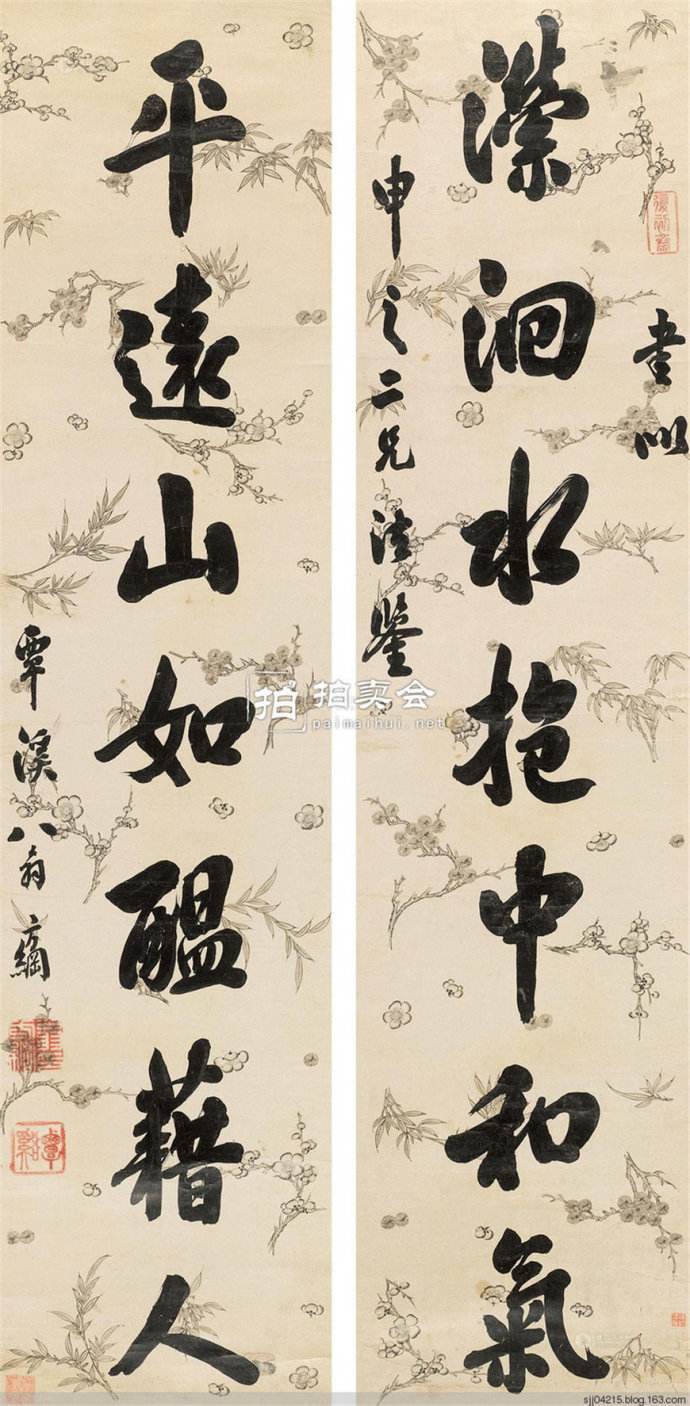 瀠洄水抱中和氣
書似
申之二兄法鑒
平遠山如醞藉人
覃溪八弟方綱
拍 拍卖会
paimaihui.net
sjj04215.blog.163.com